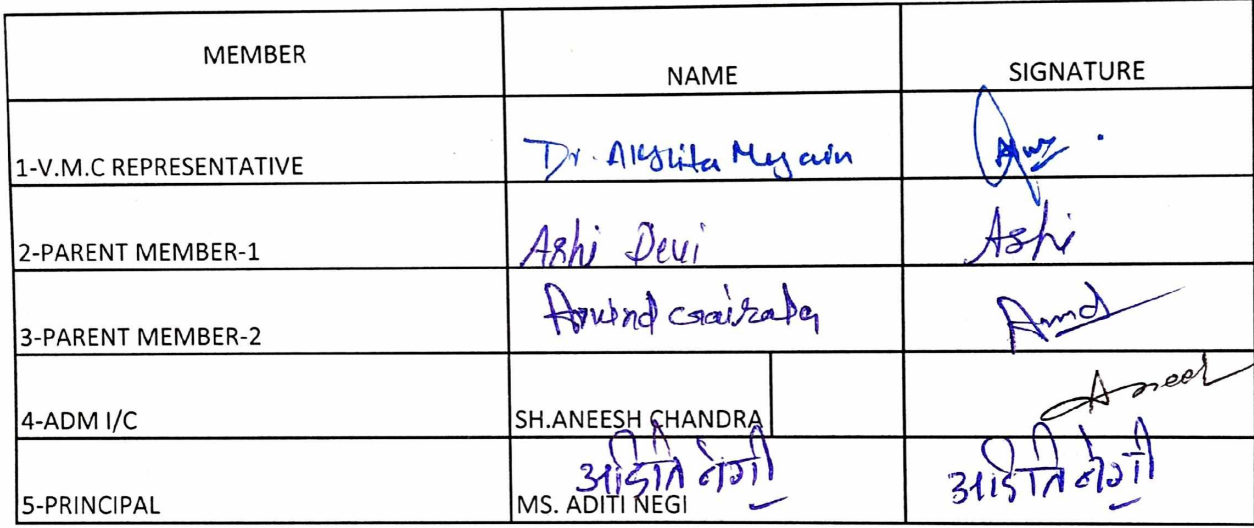 MEMBER NAME SIGNATURE
1-V.M.C REPRESENTATIVE Dr. Akshita
2-PARENT MEMBER-1 Ashi Devi Ashi
3-PARENT MEMBER-2 Arvind Gairola
4-ADM I/C SH.ANEESH CHANDRA
5-PRINCIPAL MS. ADITI NEGI अदिति नेगी अदिति नेगी